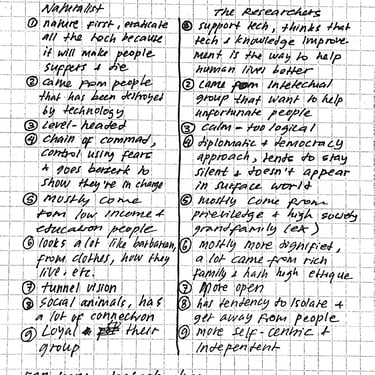 Naturalist
① nature first, eradicate
all the tech because
it will make people
suffers & die
② came from people
that has been destroyed
by technology
③ Level-headed
④ chain of commad,
control using fears
& goes berserk to
show they're in charge
⑤ mostly come
from low income &
education people
⑥ looks a lot like barbarian,
from clothes, how they
live, etc.
⑦ tunnel vision
⑧ social animals, has
a lot of connection
⑨ Loyal their
group
The Researchers
① support tech, thinks that
tech & knowledge improve-
ment is the way to help
human lives better
② came from intelectual
group that want to help
unfortunate people
③ calm - too logical
④ diplomatic & democracy
approach, tends to stay
silent & doesn't appear
in surface world
⑤ Mostly come from
priviledge & high society
grandfamily (ex)
⑥ mostly more dignified,
a lot came from rich
family & hash high etique
⑦ More open
⑧ has tendency to Isolate &
get away from people
⑨ more self-centric &
Independent